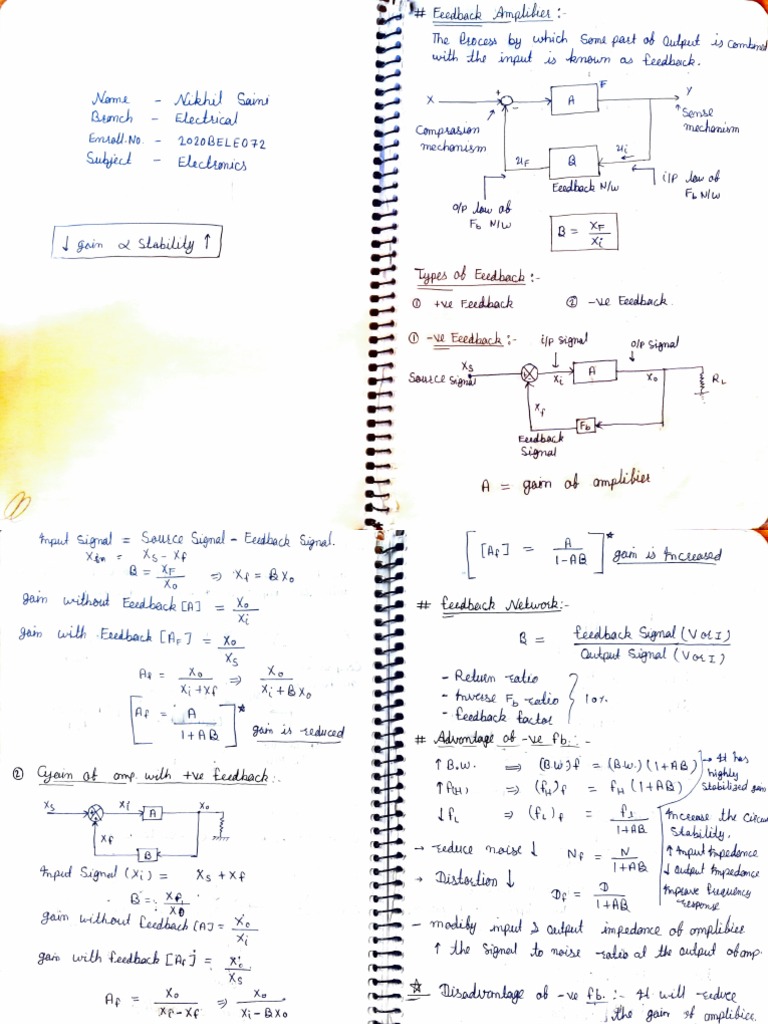 Name - Nikhil Saini
Branch - Electrical
Enroll.No. - 2020BELE072
Subject - Electronics
↓ gain ∝ Stability ↑
# Feedback Amplifier :-
The Process by which Some part of Output is combined
with the input is known as feedback.
X + - A F Y
Comprasion mechanism
Sense mechanism
B
Feedback N/W
O/P low of Fb N/W
i/P low of Fb N/W
B = XF / Xi
Types of Feedback :-
① +ve Feedback ② -ve Feedback
① -ve Feedback :-
i/p Signal
O/p Signal
Source Signal Xs Xi A Xo RL
Xf Fb
Feedback Signal
A = gain of amplifier
Input Signal = Source Signal - Feedback Signal.
= Xs - Xf
B = XF / Xo ⇒ Xf = B Xo
gain without Feedback [A] = Xo / Xi
gain with Feedback [AF] = Xo / Xs
Af = Xo / Xi + Xf ⇒ Xo / Xi + B Xo
[Af = A / 1 + AB]* gain is reduced
② Gain of amp. with +ve feedback :-
Xs Xi A Xo
Xf B
Input Signal (Xi) = Xs + Xf
B = Xf / Xo
gain without feedback [A] = Xo / Xi
gain with feedback [Af] = Xo / Xs
Af = Xo / Xf - Xf ⇒ Xo / Xi - B Xo
[[Af] = A / 1 - AB]* gain is Increased
# Feedback Network :-
B = Feedback Signal (V or I) / Output Signal (V or I)
- Return ratio
- Inverse Fb ratio } 10%
- feedback factor
# Advantage of -ve fb. :-
↑ B.W. ⇒ (BW)f = (B.W.) (1 + AB) → It has highly Stabilized gain
⇒ (fH)f = fH (1 + AB)
↓ fL ⇒ (fL)f = / 1 + AB
Increase the Circuit Stability.
→ reduce noise ↓ Nf = N / 1 + AB
↑ Input Impedance
↓ Output Impedance
→ Distortion ↓ Df = D / 1 + AB
Improve frequency response
- modify input & output impedance of amplifier
↑ the Signal to noise ratio at the output of amp.
☆ Disadvantage of -ve fb. :- It will reduce
the gain of amplifier.